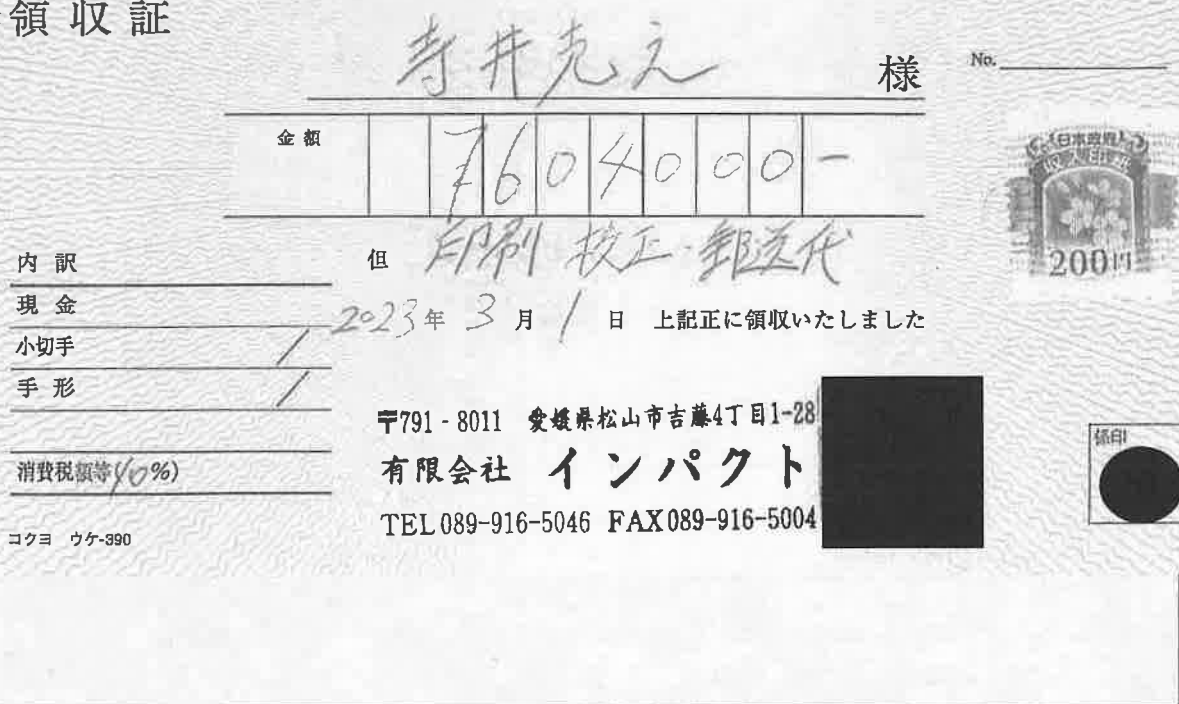 領収証
寺井克之 様
No.
金額 ¥604000-
但 印刷 校正・郵送代
2023年 3月 1日 上記正に領収いたしました
内訳
現金
小切手 /
手形 /
消費税額等(10%)
コクヨ ウケ-390
〒791-8011 愛媛県松山市吉藤4丁目1-28
有限会社 インパクト
TEL 089-916-5046 FAX 089-916-5004
日本政府
収入印紙
200円
係印